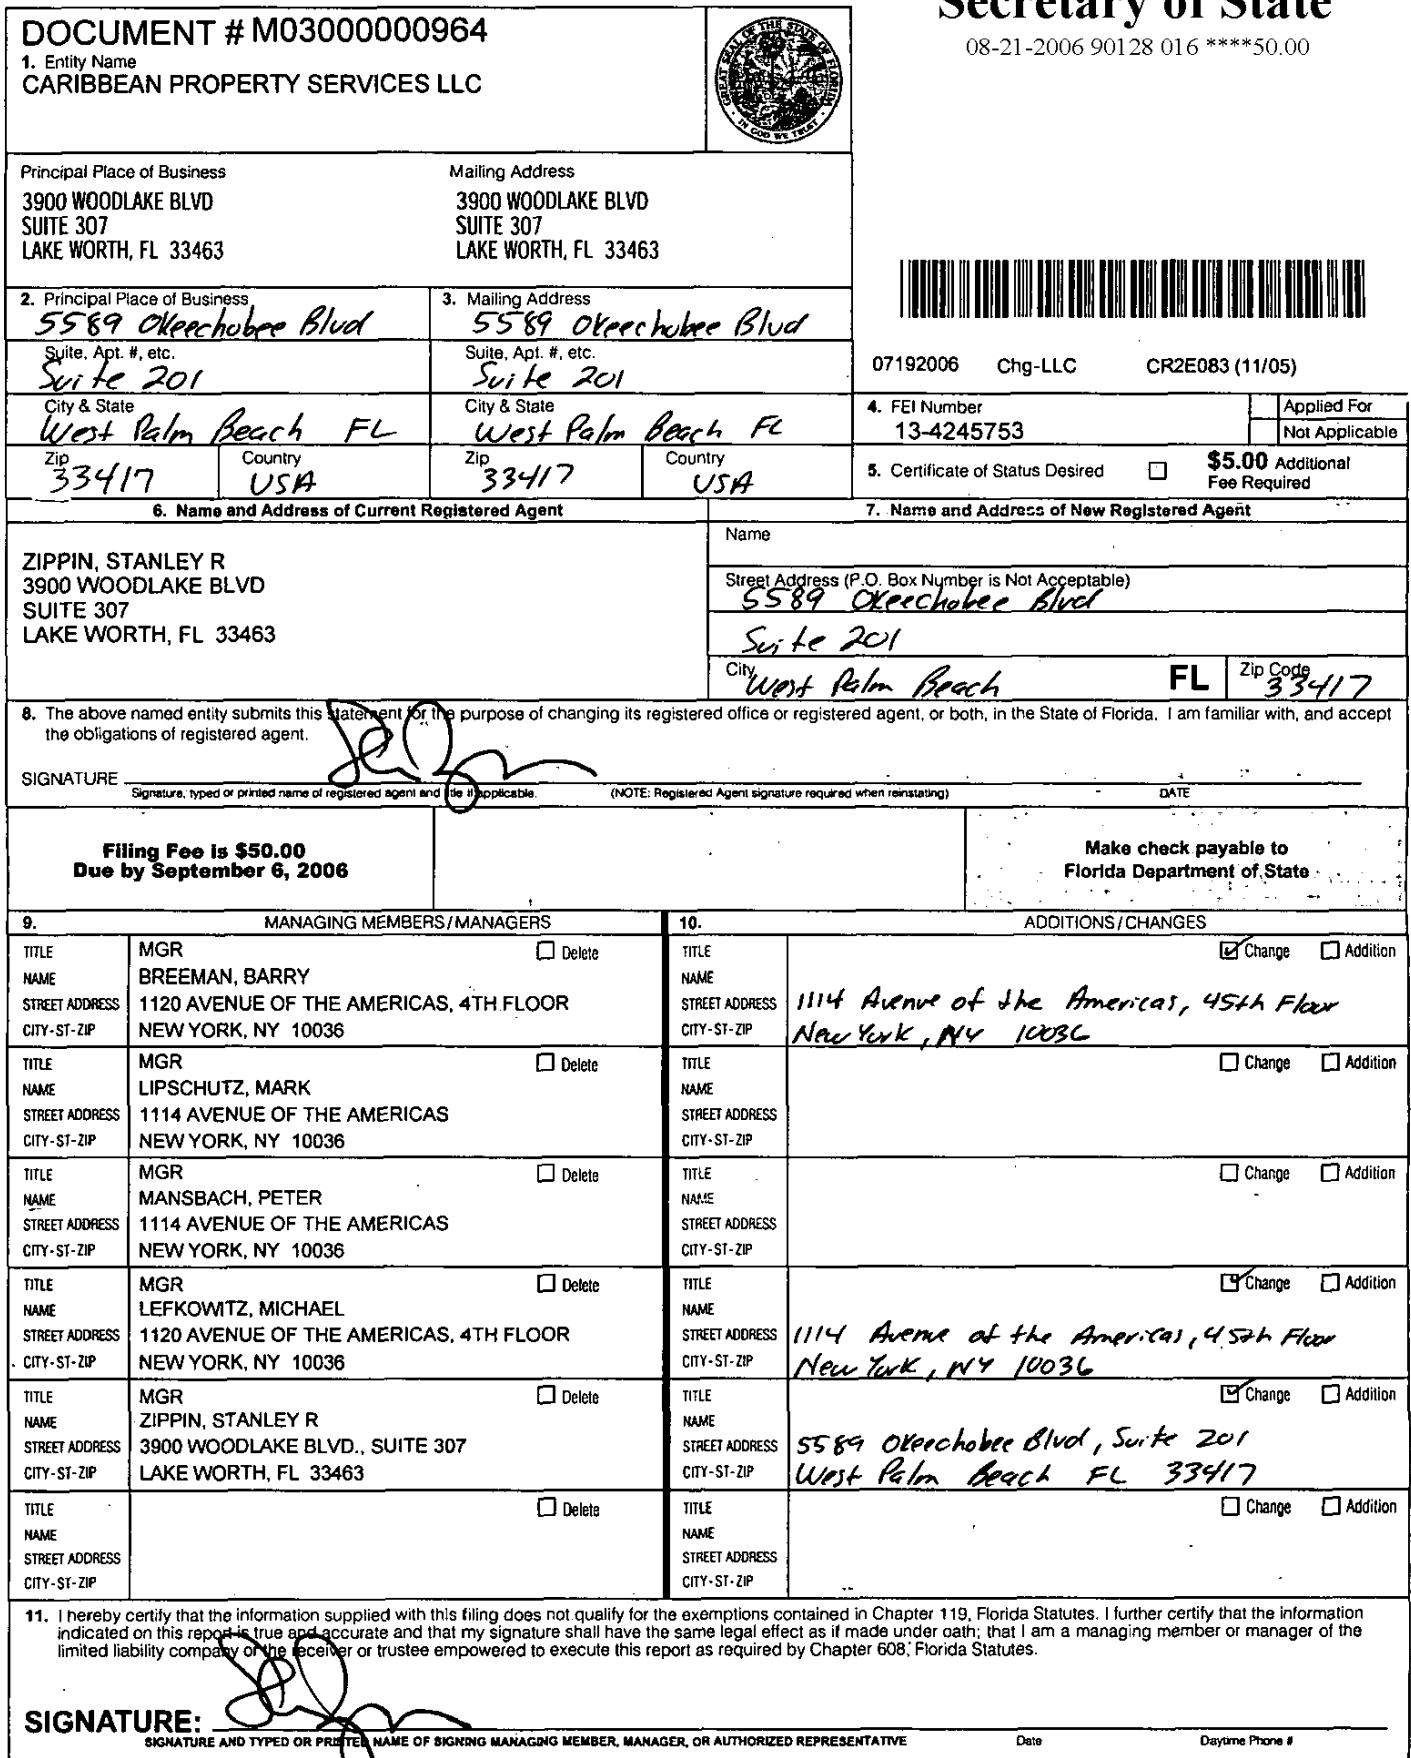 Secretary of State
08-21-2006 90128 016 ****50.00
DOCUMENT # M03000000964
1. Entity Name
CARIBBEAN PROPERTY SERVICES LLC
GREAT SEAL OF THE STATE OF FLORIDA
IN GOD WE TRUST
Principal Place of Business
3900 WOODLAKE BLVD
SUITE 307
LAKE WORTH, FL 33463
Mailing Address
3900 WOODLAKE BLVD
SUITE 307
LAKE WORTH, FL 33463
2. Principal Place of Business
5589 Okeechobee Blvd
Suite, Apt. #, etc.
Suite 201
City & State
West Palm Beach FL
Zip
33417
Country
USA
3. Mailing Address
5589 Okeechobee Blvd
Suite, Apt. #, etc.
Suite 201
City & State
West Palm Beach FL
Zip
33417
Country
USA
07192006 Chg-LLC CR2E083 (11/05)
4. FEI Number
13-4245753
Applied For
Not Applicable
5. Certificate of Status Desired
$5.00 Additional
Fee Required
6. Name and Address of Current Registered Agent
ZIPPIN, STANLEY R
3900 WOODLAKE BLVD
SUITE 307
LAKE WORTH, FL 33463
7. Name and Address of New Registered Agent
Name
Street Address (P.O. Box Number is Not Acceptable)
5589 Okeechobee Blvd
Suite 201
City
West Palm Beach
FL
Zip Code
33417
8. The above named entity submits this statement for the purpose of changing its registered office or registered agent, or both, in the State of Florida. I am familiar with, and accept
the obligations of registered agent.
SIGNATURE
Signature, typed or printed name of registered agent and title if applicable.
(NOTE: Registered Agent signature required when reinstating)
DATE
Filing Fee is $50.00
Due by September 6, 2006
Make check payable to
Florida Department of State
9. MANAGING MEMBERS/MANAGERS
10. ADDITIONS/CHANGES
TITLE MGR Delete
NAME BREEMAN, BARRY
STREET ADDRESS 1120 AVENUE OF THE AMERICAS, 4TH FLOOR
CITY-ST-ZIP NEW YORK, NY 10036
TITLE Change Addition
NAME
STREET ADDRESS 1114 Avenue of the Americas, 45th Floor
CITY-ST-ZIP New York, NY 10036
TITLE MGR Delete
NAME LIPSCHUTZ, MARK
STREET ADDRESS 1114 AVENUE OF THE AMERICAS
CITY-ST-ZIP NEW YORK, NY 10036
TITLE Change Addition
NAME
STREET ADDRESS
CITY-ST-ZIP
TITLE MGR Delete
NAME MANSBACH, PETER
STREET ADDRESS 1114 AVENUE OF THE AMERICAS
CITY-ST-ZIP NEW YORK, NY 10036
TITLE Change Addition
NAME
STREET ADDRESS
CITY-ST-ZIP
TITLE MGR Delete
NAME LEFKOWITZ, MICHAEL
STREET ADDRESS 1120 AVENUE OF THE AMERICAS, 4TH FLOOR
CITY-ST-ZIP NEW YORK, NY 10036
TITLE Change Addition
NAME
STREET ADDRESS 1114 Avenue of the Americas, 45th Floor
CITY-ST-ZIP New York, NY 10036
TITLE MGR Delete
NAME ZIPPIN, STANLEY R
STREET ADDRESS 3900 WOODLAKE BLVD., SUITE 307
CITY-ST-ZIP LAKE WORTH, FL 33463
TITLE Change Addition
NAME
STREET ADDRESS 5589 Okeechobee Blvd, Suite 201
CITY-ST-ZIP West Palm Beach FL 33417
TITLE Delete
NAME
STREET ADDRESS
CITY-ST-ZIP
TITLE Change Addition
NAME
STREET ADDRESS
CITY-ST-ZIP
11. I hereby certify that the information supplied with this filing does not qualify for the exemptions contained in Chapter 119, Florida Statutes. I further certify that the information
indicated on this report is true and accurate and that my signature shall have the same legal effect as if made under oath; that I am a managing member or manager of the
limited liability company or the receiver or trustee empowered to execute this report as required by Chapter 608, Florida Statutes.
SIGNATURE:
SIGNATURE AND TYPED OR PRINTED NAME OF SIGNING MANAGING MEMBER, MANAGER, OR AUTHORIZED REPRESENTATIVE
Date
Daytime Phone #